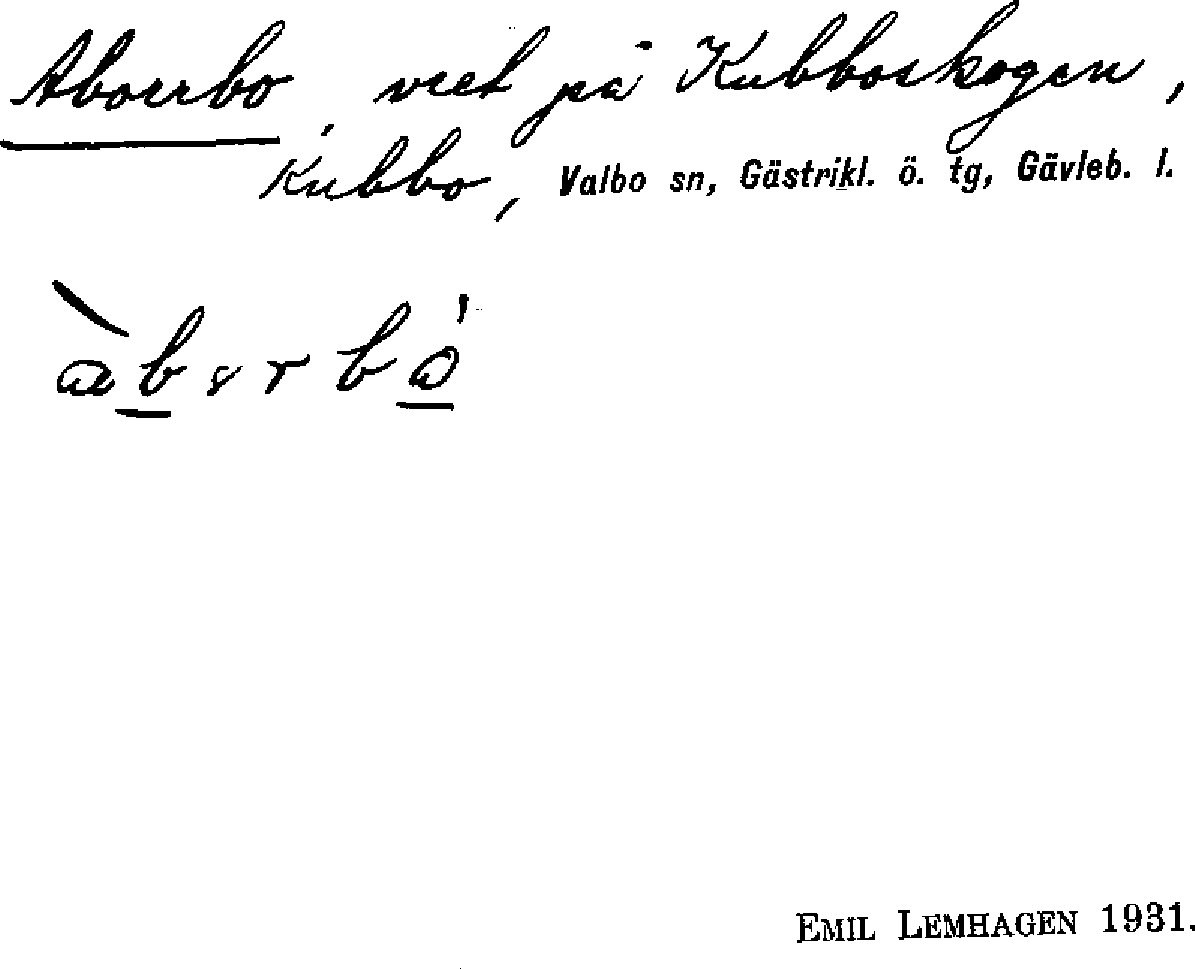 Aborrbo, vret på Kubboskogen,
Kubbo, Valbo sn, Gästrikl. ö. tg, Gävleb. l.
EMIL LEMHAGEN 1931.